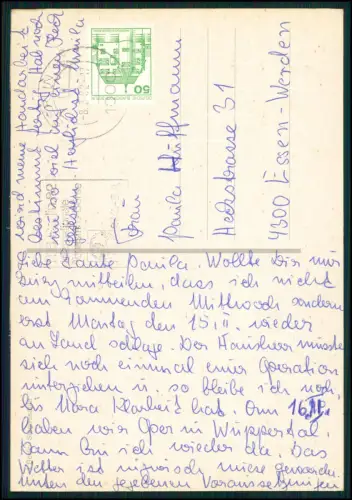 Liebe Tante Paula. Wollte Dir nur
kurz mitteilen, dass ich nicht
am kommenden Mittwoch sondern
erst Montag den 15.II. wieder
an Land schlage. Der Hausherr musste
sich noch einmal einer Operation
unterziehen u. so bleibe ich noch,
bis Mora Klarheit hat. Am 16.II.
haben wir Oper in Wuppertal.
Dann bin ich wieder da. Das
Wetter ist inzwischen miese geworden.
Unter den gegebenen Voraussetzungen
wird meine Handarbeit
bestimmt fertig. Hab noch
nie so viel auf einem Fleck
gesessen. Herzlichst
Frau
Paula Hüffmann
Heckstrasse 31
4300 Essen-Werden
50